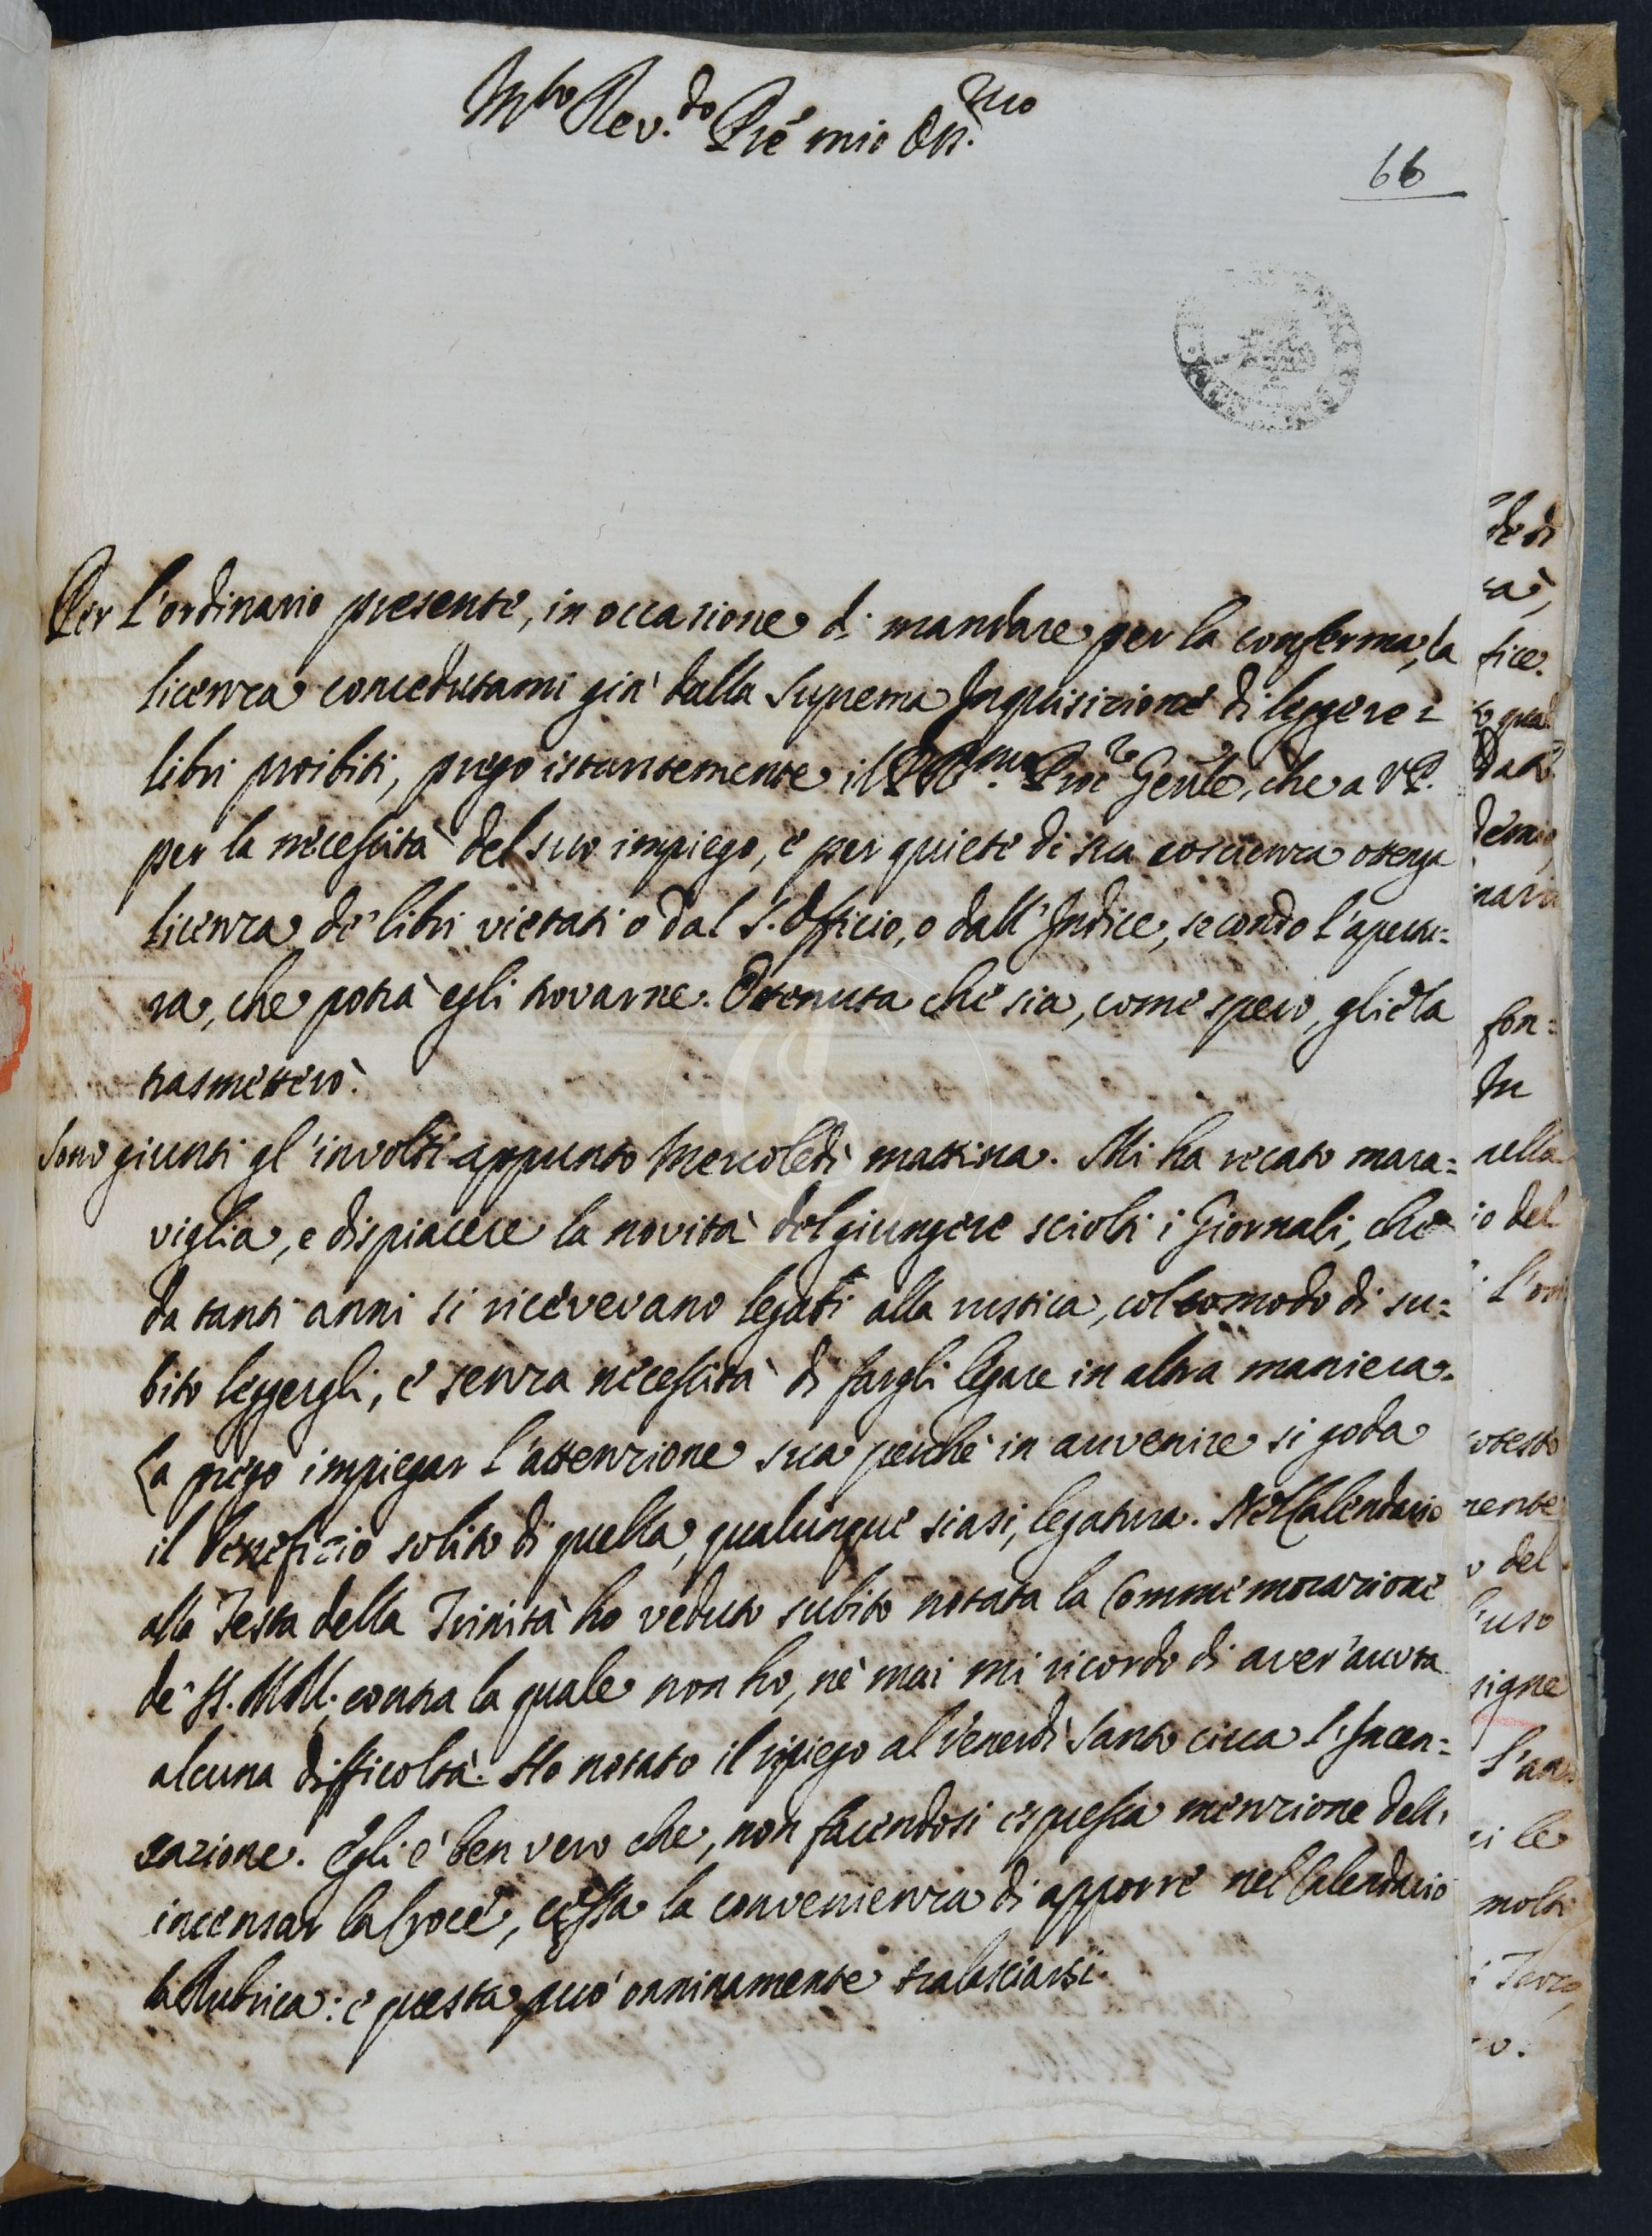 M.to Rev.do Pre mio Oss.mo
66
Per l'ordinario presente, in occasione di mandare per la conferma, la
licenza concedutami già dalla Suprema Inquisizione di leggere i
libri proibiti, prego istantemente il P. Rmo Proc.re Genle, che a V.P.
per la necessità del suo impiego, e per quiete di sua coscienza ottenga
licenza de' libri vietati o dal S. Officio, o dall'Indice, secondo l'apertu=
ra, che potrà egli trovarne. Ottenuta che sia, come spero, gliela
trasmetterò.
Sono giunti gl'involti appunto Mercoledì mattina. Mi ha recato mara=
viglia, e dispiacere la novità del giungere sciolti i Giornali, che
da tanti anni si ricevevano legati alla rustica, col comodo di su=
bito leggergli, e senza necessità di fargli legare in altra maniera.
La prego impiegar l'attenzione sua perchè in avvenire si goda
il benefizio solito di quella, qualunque siasi, legatura. Nel Calendario
alla Festa della Trinità ho veduto subito notata la Commemorazione
de' SS. MM; contra la quale non ho, nè mai mi ricordo di aver'avuta
alcuna difficoltà. Ho notato il ripiego al Venerdì Santo circa l'Incen=
sazione. Egli è ben vero che, non facendosi espressa menzione dell'
incensar la Croce, cessa la convenienza di apporre nel Calendario
la Rubrica: e questa può onninamente tralasciarsi.